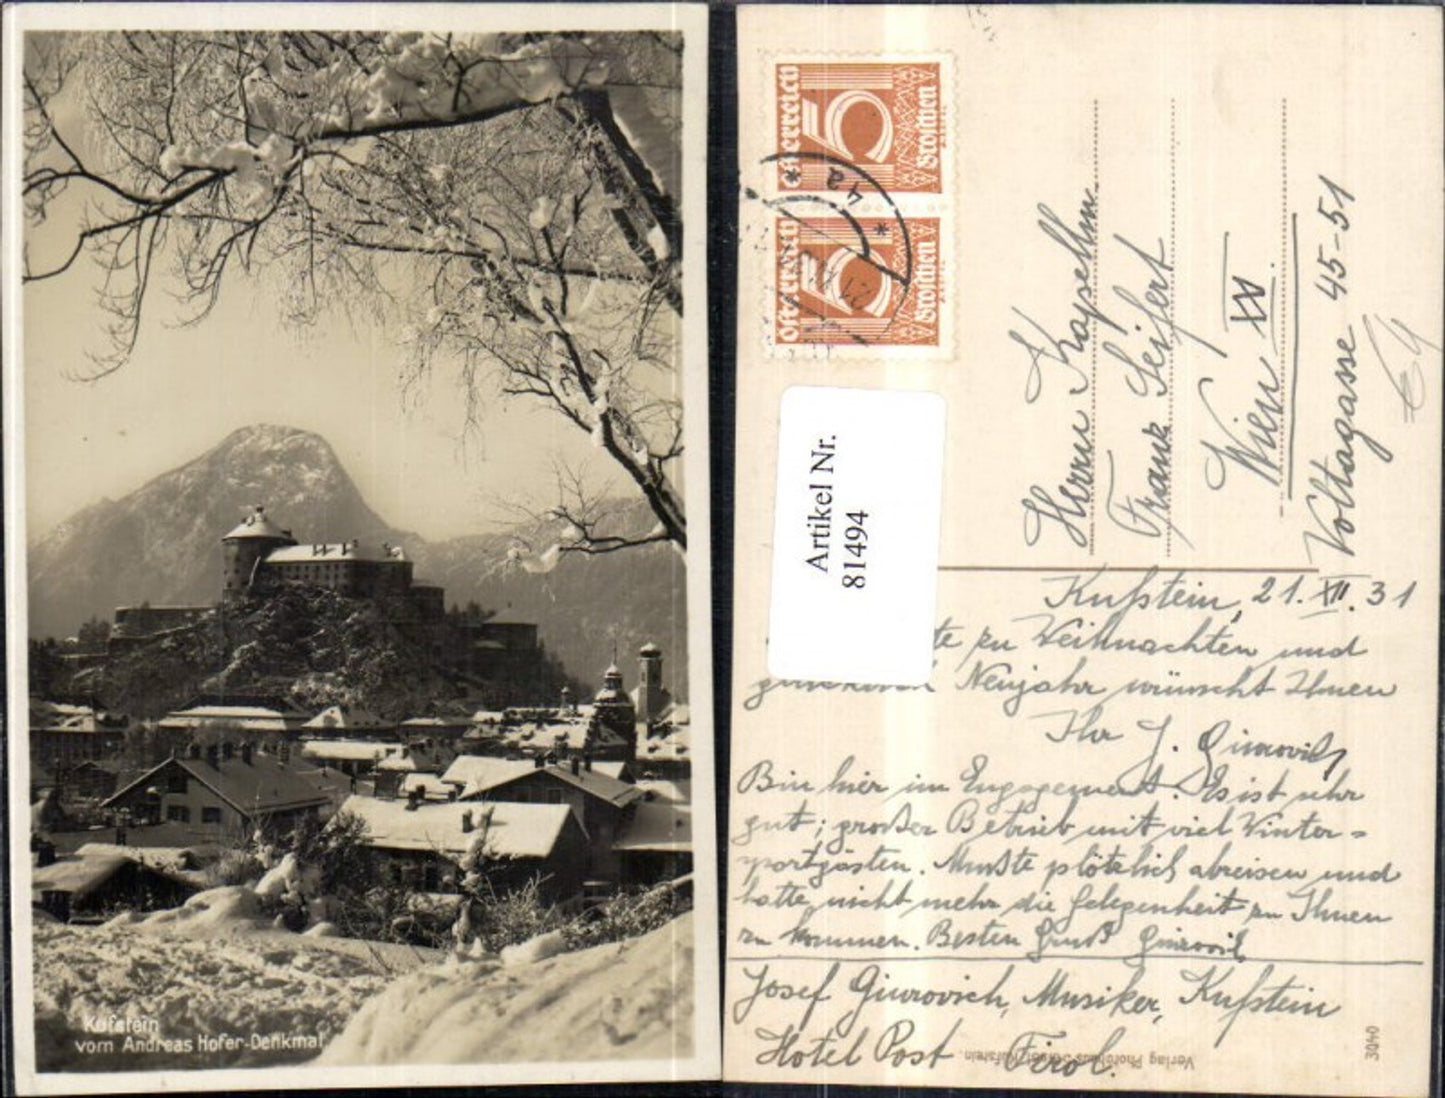 Kufstein
vom Andreas Hofer-Denkmal
Österreich
5
Groschen
Österreich
5
Groschen
Artikel Nr.
81494
Herrn Kapellm.
Franz Seifert
Wien XV.
Voltagasse 45-51
Kufstein, 21. XII. 31
zu Weihnachten und
Neujahr wünscht Ihnen
Ihr J. Giurovich
Bin hier im Engagement. Es ist sehr
gut; großer Betrieb mit viel Winter-
sportgästen. Mußte plötzlich abreisen und
hatte nicht mehr die Gelegenheit zu Ihnen
zu kommen. Besten Gruß
Josef Giurovich, Musiker, Kufstein
Hotel Post Tirol.
Verlag Photohaus Kufstein.
3040